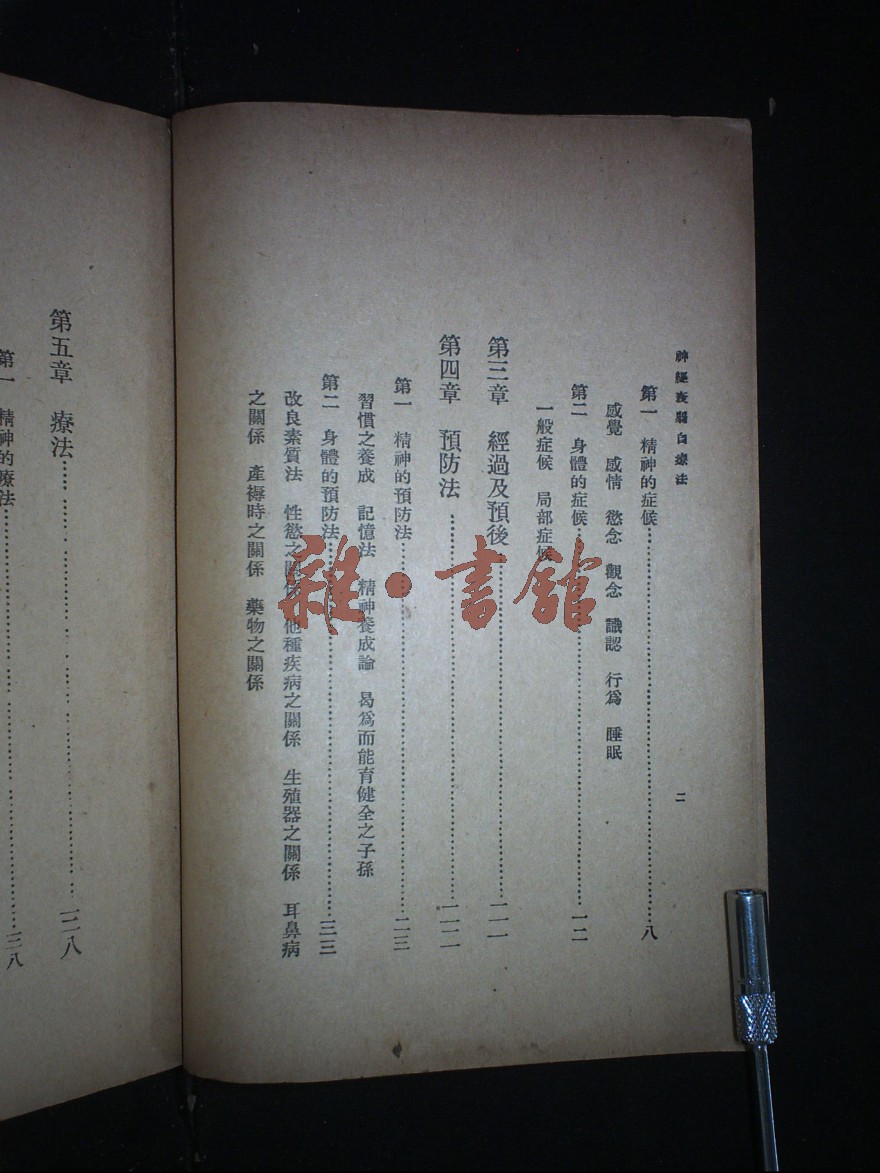 神經衰弱自療法 二
第一 精神的症候……八
感覺 感情 慾念 觀念 識認 行爲 睡眠
第二 身體的症候……一二
一般症候 局部症候
第三章 經過及預後……二一
第四章 預防法……二二
第一 精神的預防法……二三
習慣之養成 記憶法 精神養成論 曷爲而能育健全之子孫
第二 身體的預防法……三三
改良素質法 性慾之關係 他種疾病之關係 生殖器之關係 耳鼻病
之關係 產褥時之關係 藥物之關係
第五章 療法……三八
第一 精神的療法……三八
雜·書館